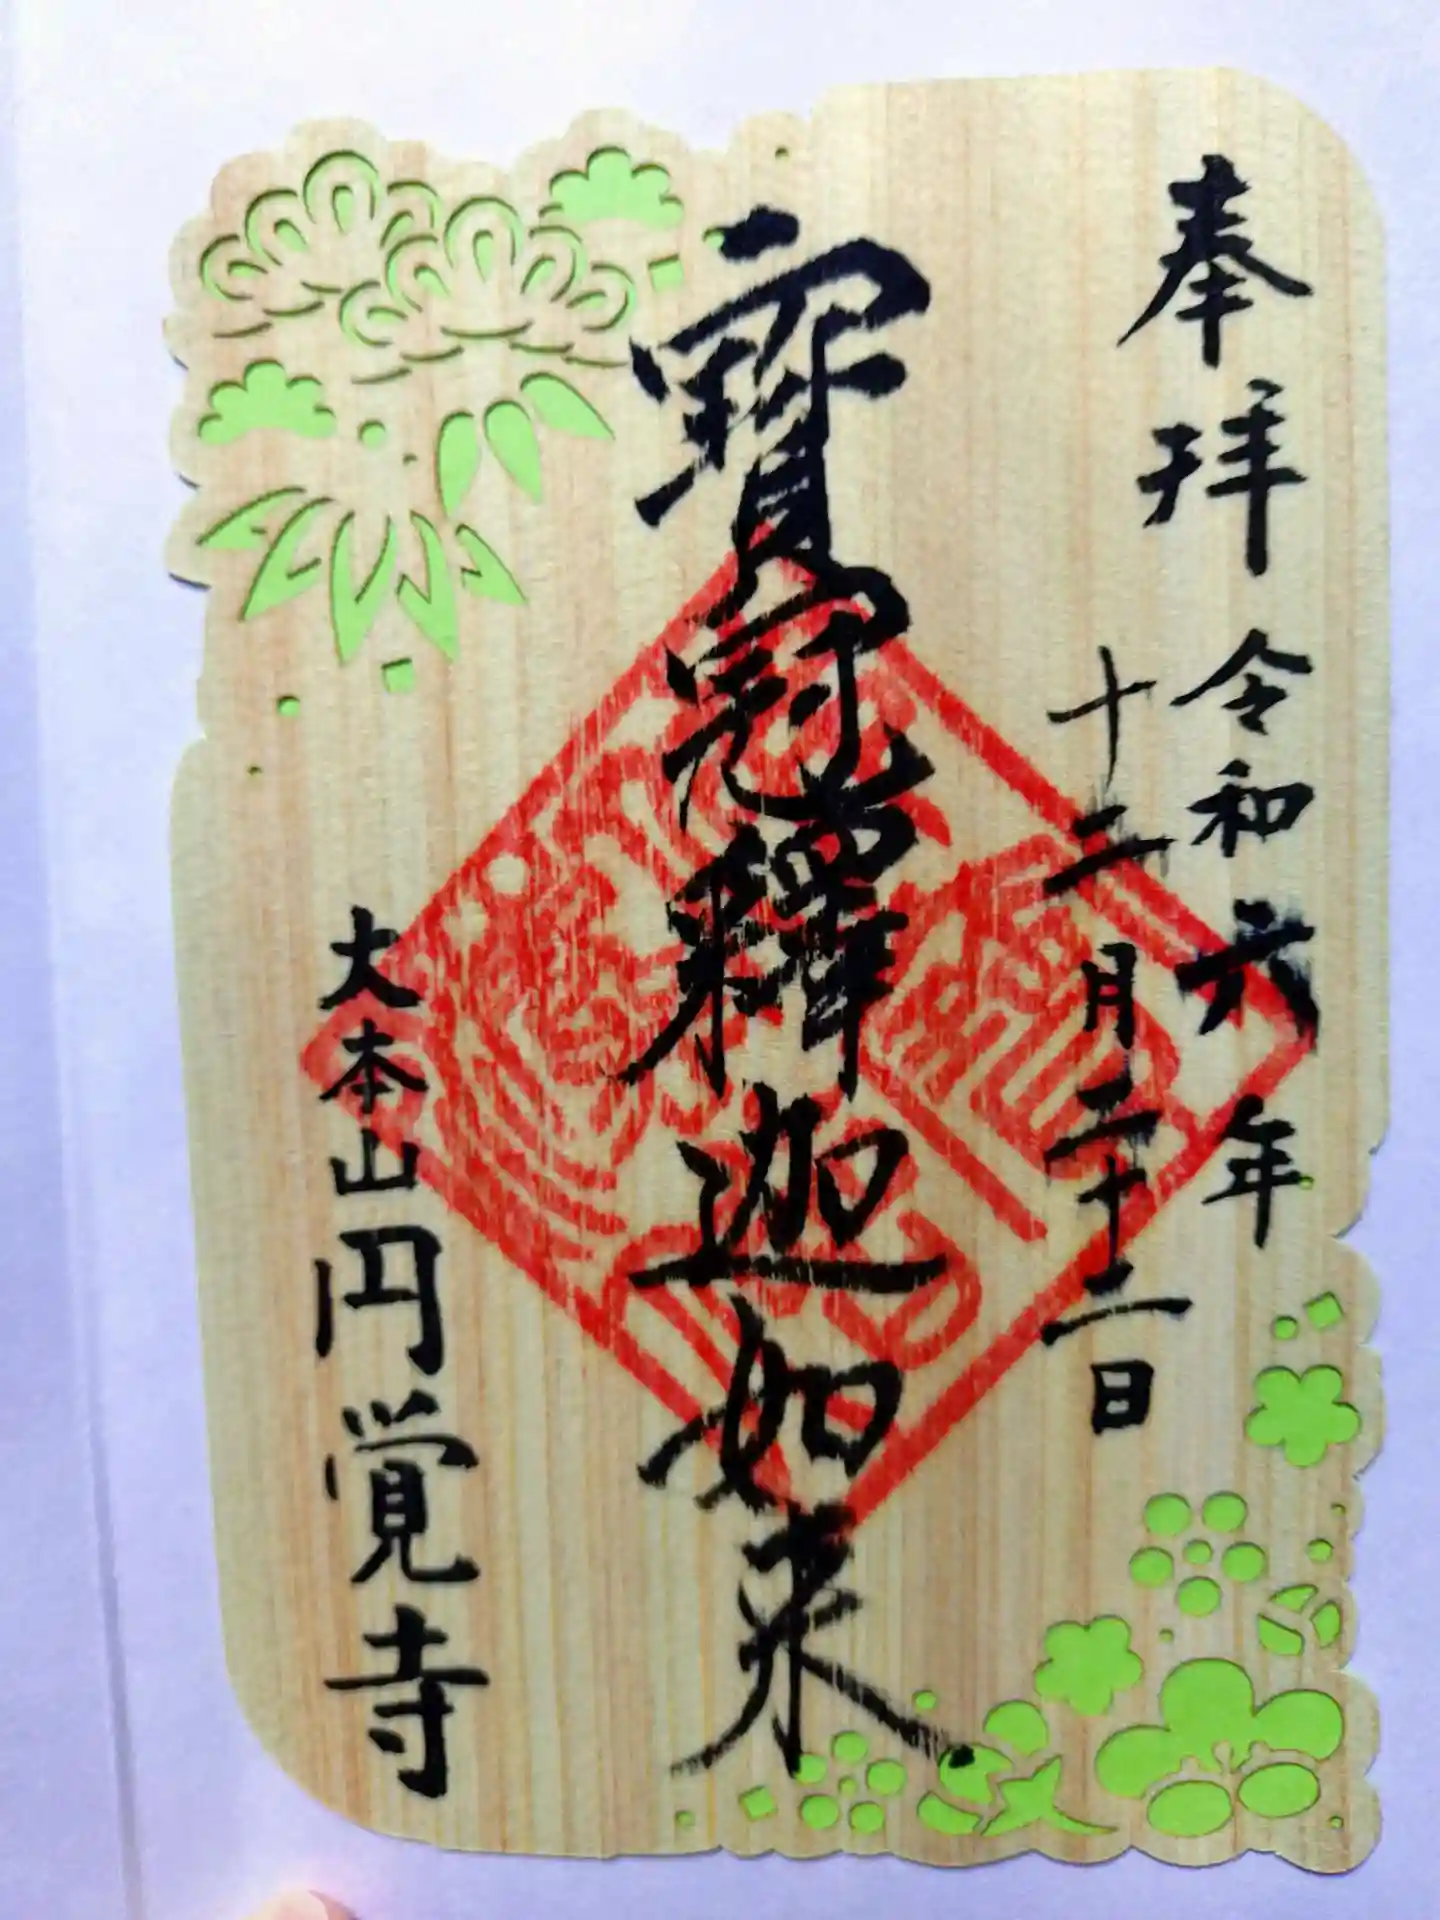 奉拝 令和六年
十二月二十二日
寶冠釋迦如来
大本山円覚寺